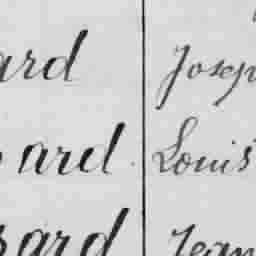 ard Josep
ard Louis
sard Jean